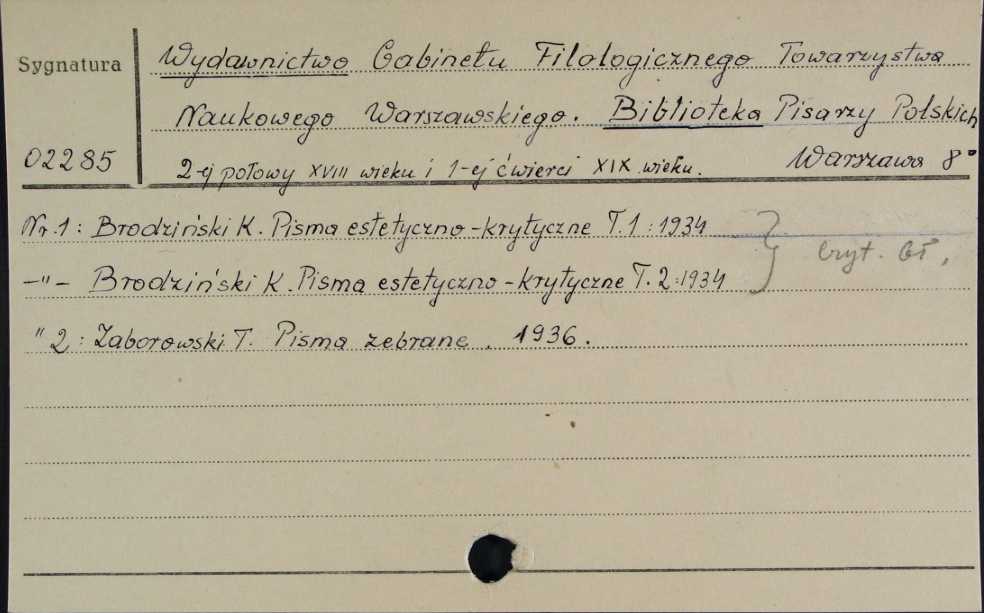 Sygnatura
Wydawnictwo Gabinetu Filologicznego Towarzystwa
Naukowego Warszawskiego. Biblioteka Pisarzy Polskich
02285
2-ej połowy XVIII wieku i 1-ej ćwierci XIX wieku. Warszawa 8°
Nr.1: Brodziński K. Pisma estetyczno-krytyczne T.1:1934
-"- Brodziński K. Pisma estetyczno-krytyczne T.2:1934
} Czyt. Gł.
" 2: Zaborowski T. Pisma zebrane. 1936.